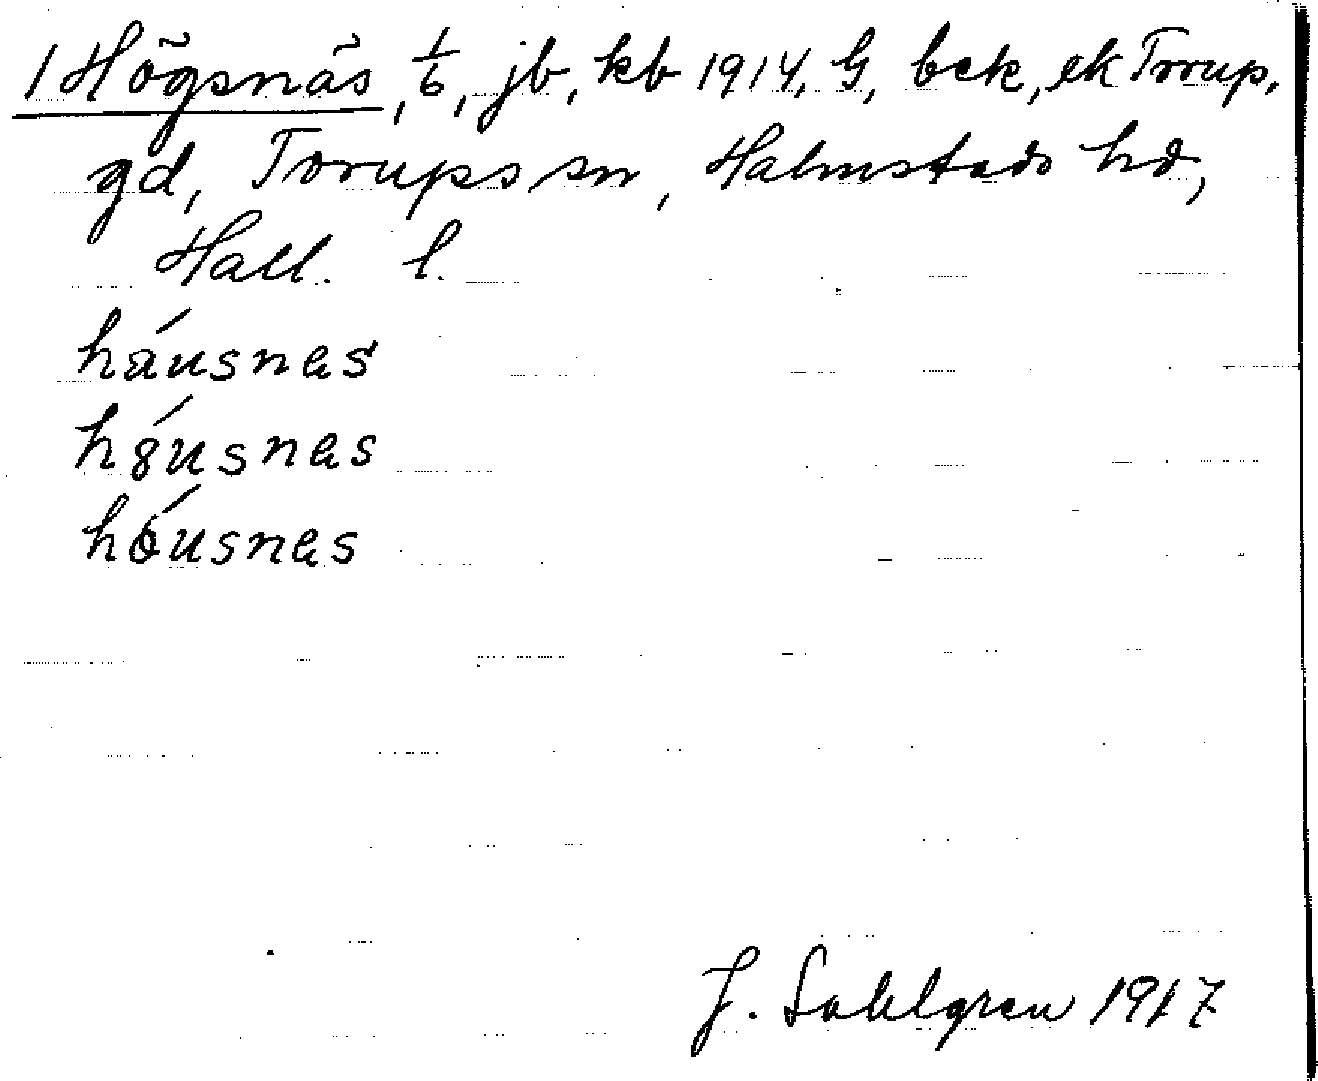 1 Högsnäs, 1/6, jb, kb 1914, G, bek, ek Torup,
gd, Torups sn, Halmstads hd,
Hall. l.
háusnas
hóusnas
J. Sahlgren 1917